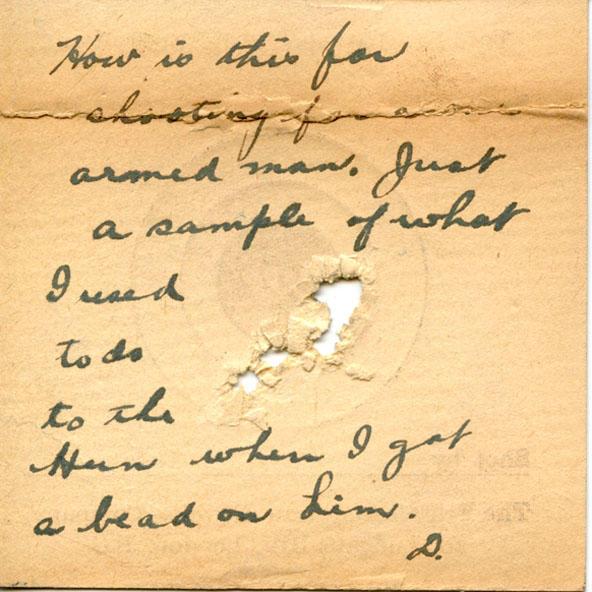 How is this for
shooting for a one
armed man. Just
a sample of what
I used
to do
to the
Hun when I got
a bead on him.
D.